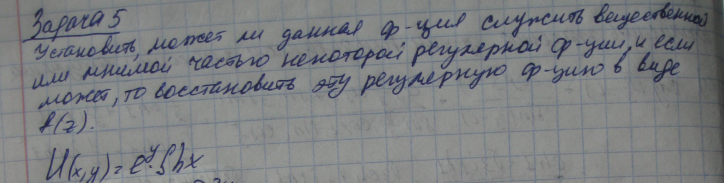 Задача 5
Установить, может ли данная ф-ция служить вещественной
или мнимой частью некоторой регулярной ф-ции, и если
может, то восстановить эту регулярную ф-цию в виде
f(z).
U(x,y) = e^y·Shx